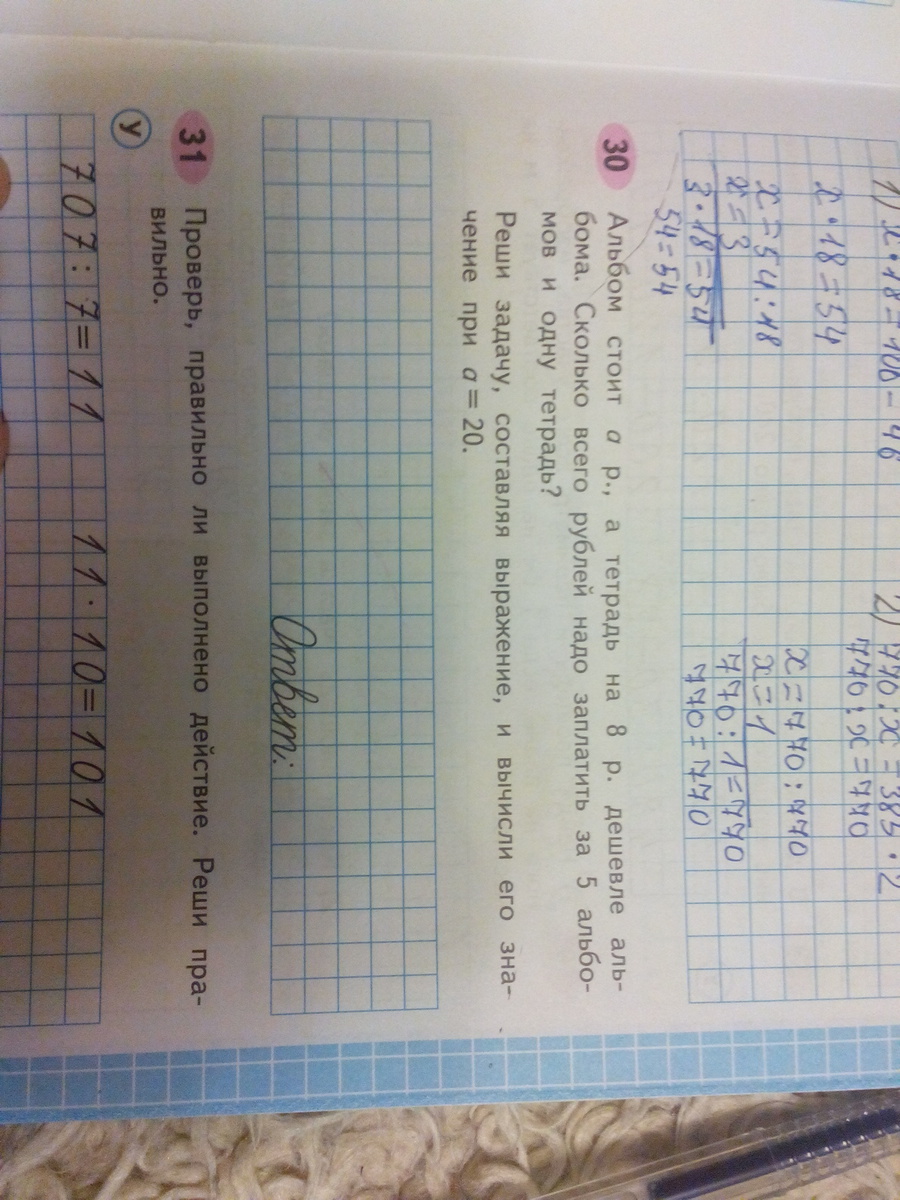 1) x · 18 = 100 - 46
x · 18 = 54
x = 54 : 18
x = 3
3 · 18 = 54
54 = 54
2) 770 : x = 385 · 2
770 : x = 770
x = 770 : 770
x = 1
770 : 1 = 770
770 = 770
30 Альбом стоит a р., а тетрадь на 8 р. дешевле аль-
бома. Сколько всего рублей надо заплатить за 5 альбо-
мов и одну тетрадь?
Реши задачу, составляя выражение, и вычисли его зна-
чение при a = 20.
Ответ:
31 Проверь, правильно ли выполнено действие. Реши пра-
вильно.
У
707 : 7 = 11 11 · 10 = 101